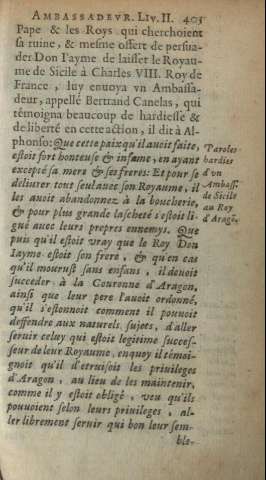 AMBASSADEVR. LIV. II. 403
Pape & les Roys qui cherchoient
sa ruine, & mesme offert de persua-
der Don Iayme de laisser le Royau-
me de Sicile à Charles VIII. Roy de
France, luy enuoya vn Ambassa-
deur, appellé Bertrand Canelas, qui
témoigna beaucoup de hardiesse &
de liberté en cette action, il dit à Al-
phonso: Que cette paix qu'il auoit faite,
estoit fort honteuse & infame, en ayant
excepté sa mere & ses freres: Et pour se
déliurer tout seul auec son Royaume, il
les auoit abandonnez à la boucherie,
& pour plus grande lascheté s'estoit li-
gué auec leurs propres ennemys. Que
puis qu'il estoit vray que le Roy Don
Iayme estoit son frere, & qu'en cas
qu'il mourust sans enfans, il deuoit
succeder à la Couronne d'Aragon,
ainsi que leur pere l'auoit ordonné,
qu'il s'estonnoit comment il pouuoit
deffendre aux naturels sujets, d'aller
seruir celuy qui estoit legitime succes-
seur de leur Royaume, en quoy il témoi-
gnoit qu'il d'etruisoit les priuileges
d'Aragon, au lieu de les maintenir,
comme il y estoit obligé, veu qu'ils
pouuoient selon leurs priuileges, al-
ler librement seruir qui bon leur sem-
ble.
Paroles
hardies
d'vn
Ambass.
de Sicile
au Roy
d'Aragō.